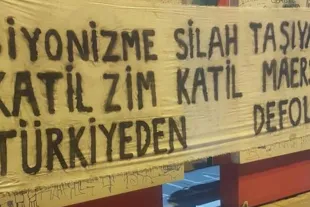 SİYONİZME SİLAH TAŞIYA
KATİL ZİM KATİL MAERS
TÜRKİYEDEN DEFOL